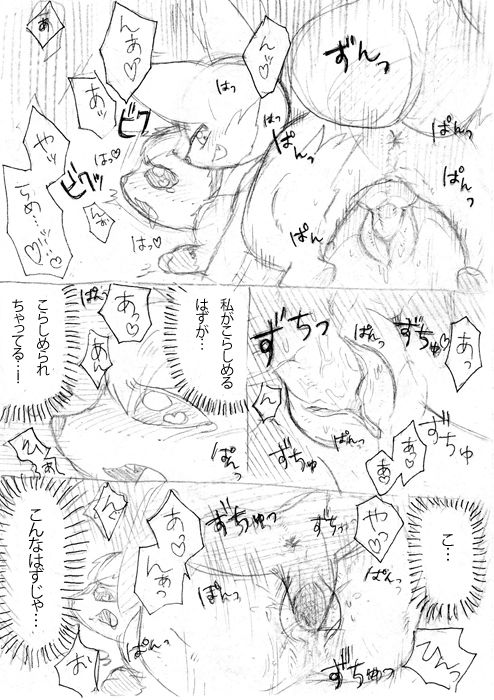 ずんっ
んっ♡
んあっ♡
あ
はっ
はっ
ぱんっ
ぱんっ
ぱんっ
ぱん
あッ
ビク
はっ♡
ビクッ
やッ
らめ…ッ…♡♡
んぁ
はっ♡
ずちっ
ぱんっ
ずちゅ
あっ
ん
ぱんっ
ずちゅ
ずちゅ
あっ
あ♡
私がこらしめる
はずが…
あっ♡
ぱんっ
あん
こらしめられ
ちゃってる…!
ぱんっ
こ…
やっ♡
ずちゅっ
ずちゅっ
あっ♡
んあっ
ん
ぱんっ
ぱんっ
ぱんっ
ずちゅっ
ひんっ
こんなはずじゃ…